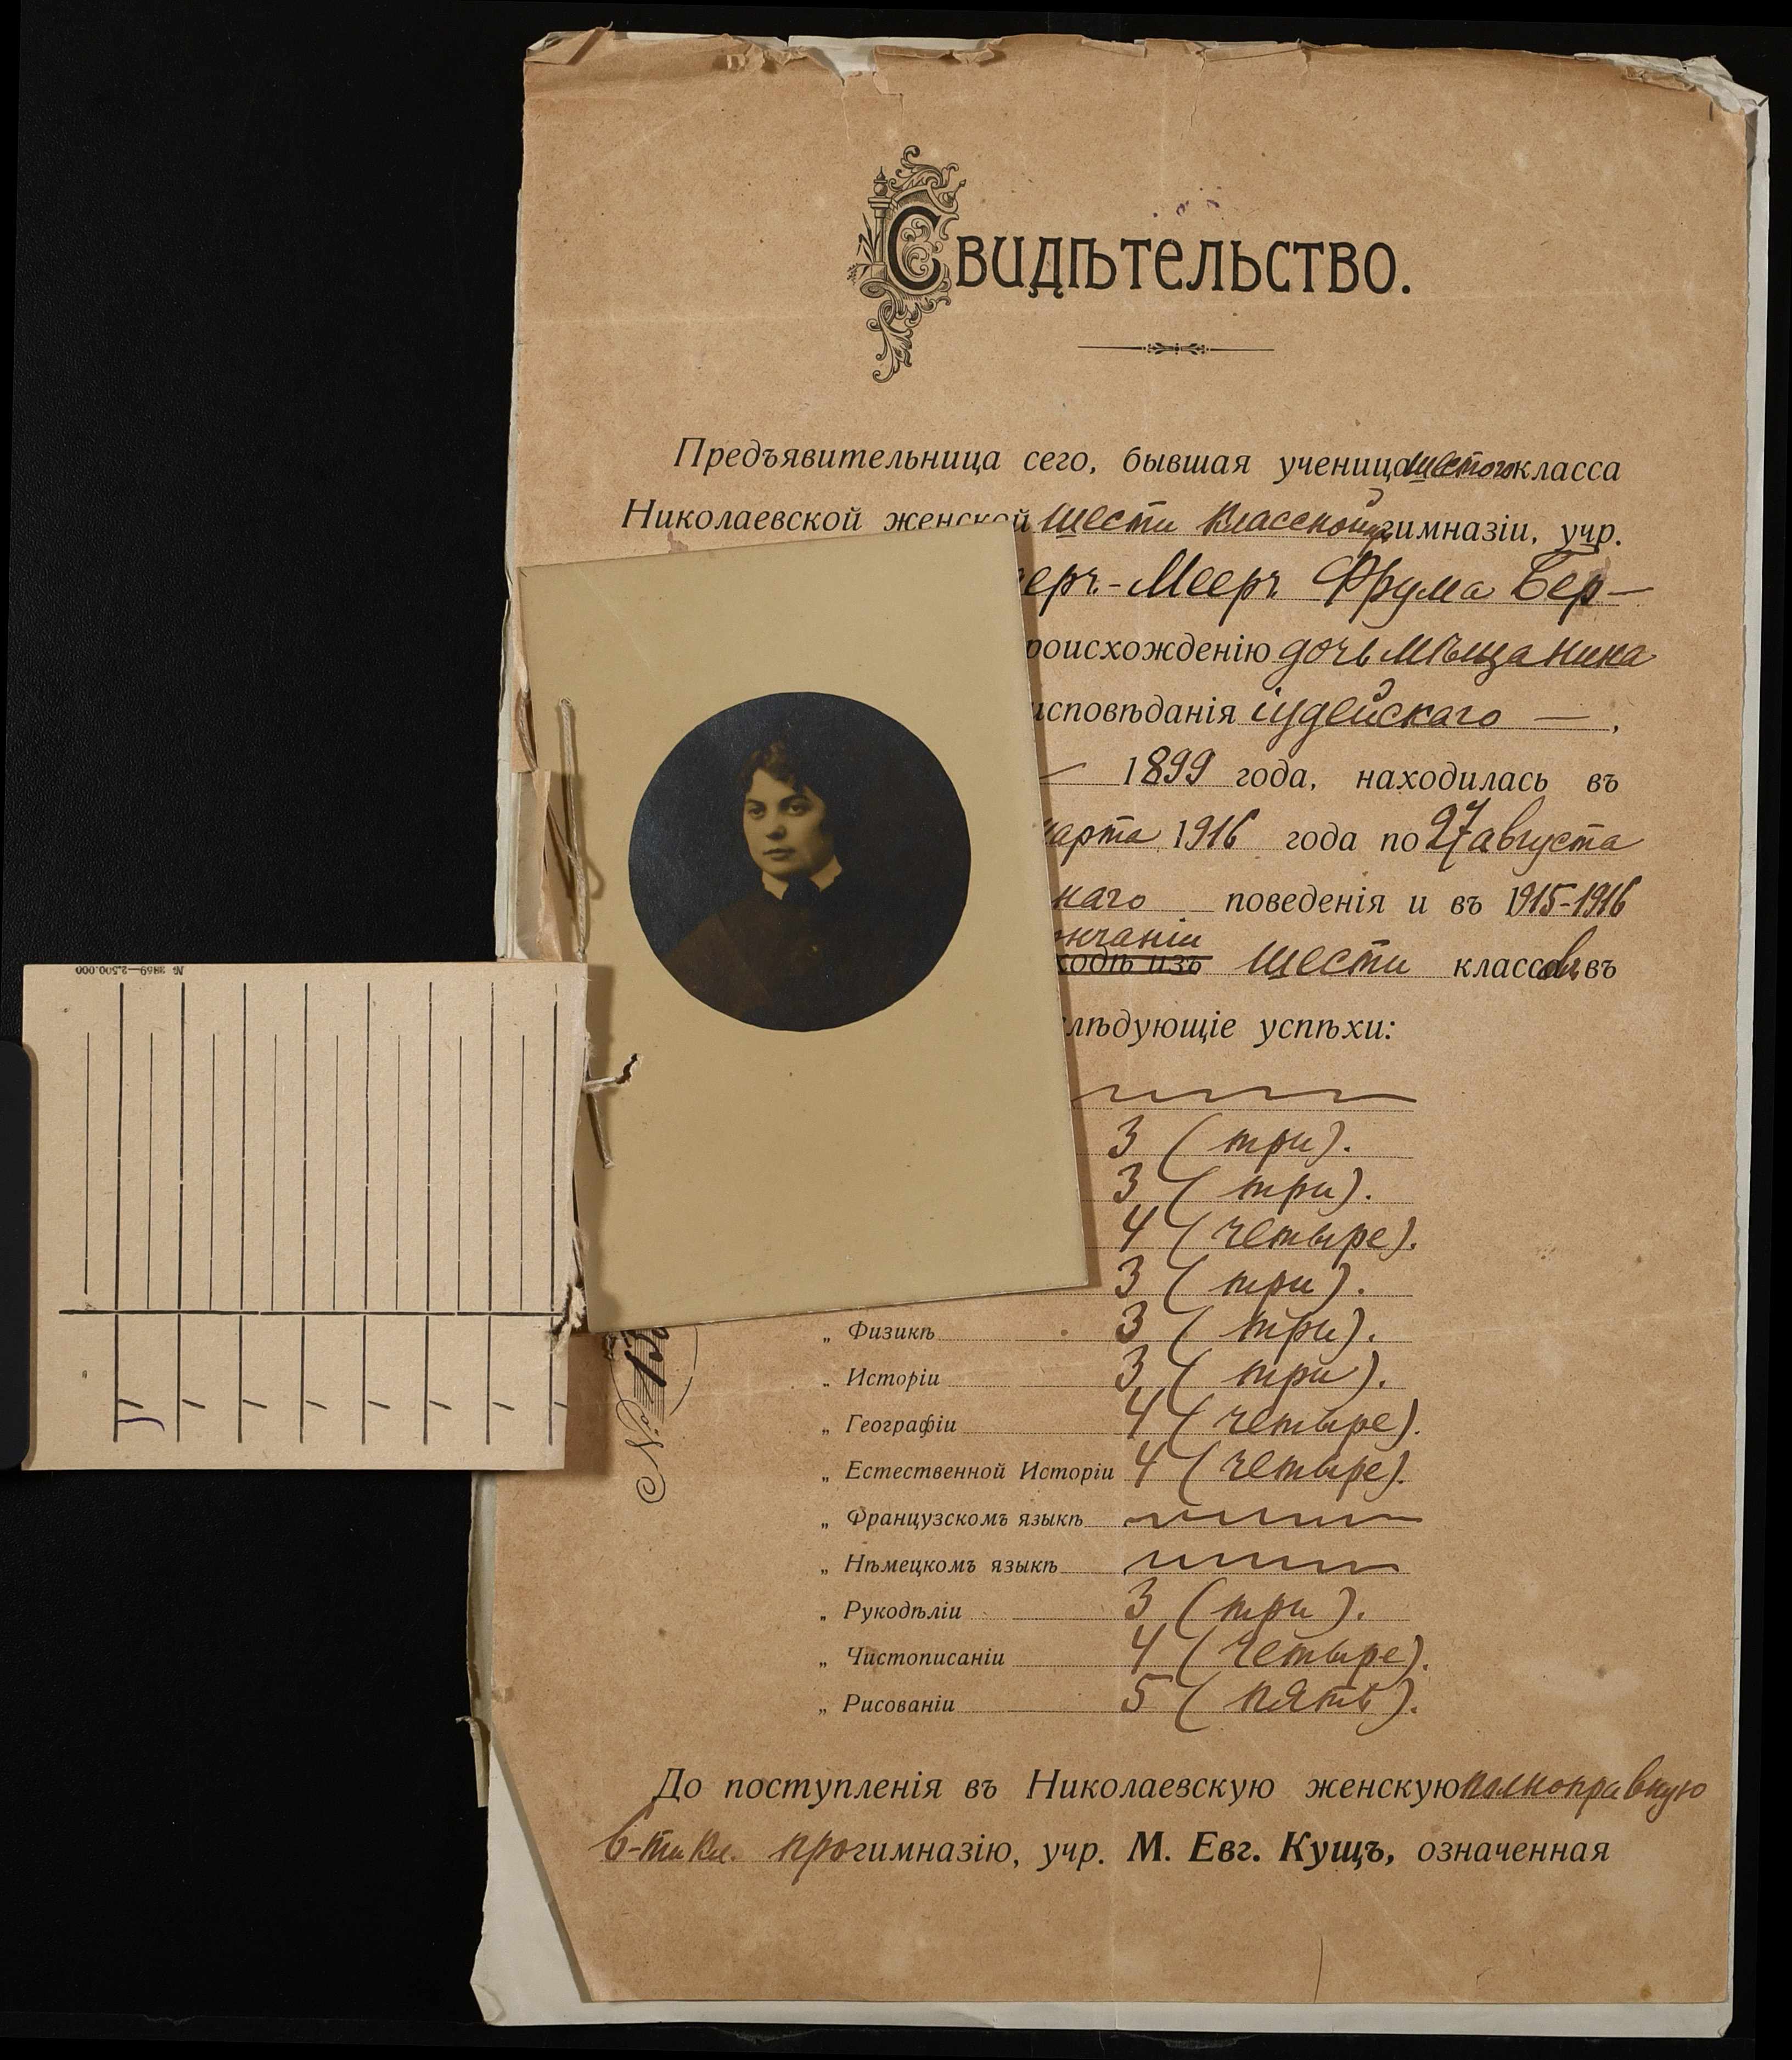 Свидѣтельство.
Предъявительница сего, бывшая ученица шестого класса
Николаевской женской шести классной прогимназіи, учр.
еръ-Мееръ Фрума Бер-
роисхожденію дочь мѣщанина
исповѣданія іудейскаго — ,
— 1899 года, находилась въ
марта 1916 года по 27 августа
наго поведенія и въ 1915-1916
ончаніи
ходѣ изъ шести классовъ въ
слѣдующіе успѣхи:
3 (три).
3 (три).
4 (четыре).
3 (три).
„ Физикѣ 3 (три).
„ Исторіи 3 (три).
„ Географіи 4 (четыре).
„ Естественной Исторіи 4 (четыре).
„ Французскомъ языкѣ
„ Нѣмецкомъ языкѣ
„ Рукодѣліи 3 (три).
„ Чистописаніи 4 (четыре).
„ Рисованіи 5 (пять).
До поступленія въ Николаевскую женскую полноправную
6-ти кл. прогимназію, учр. М. Евг. Кущъ, означенная
№ 2869—2.500.000
№